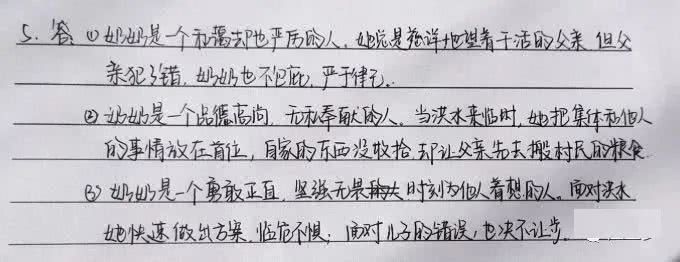 5. 答: ①奶奶是一个和蔼却也严厉的人。她总是慈详地望着干活的父亲,但父
亲犯了错,奶奶也不包庇,严于律己。
②奶奶是一个品德高尚,无私奉献的人。当洪水来临时,她把集体和他人
的事情放在首位,自家的东西没收拾却让父亲先去搬村民的粮食
③奶奶是一个勇敢正直,坚强无畏 时刻为他人着想的人。面对洪水
她快速做出方案,临危不惧;面对儿子的错误,也决不让步。